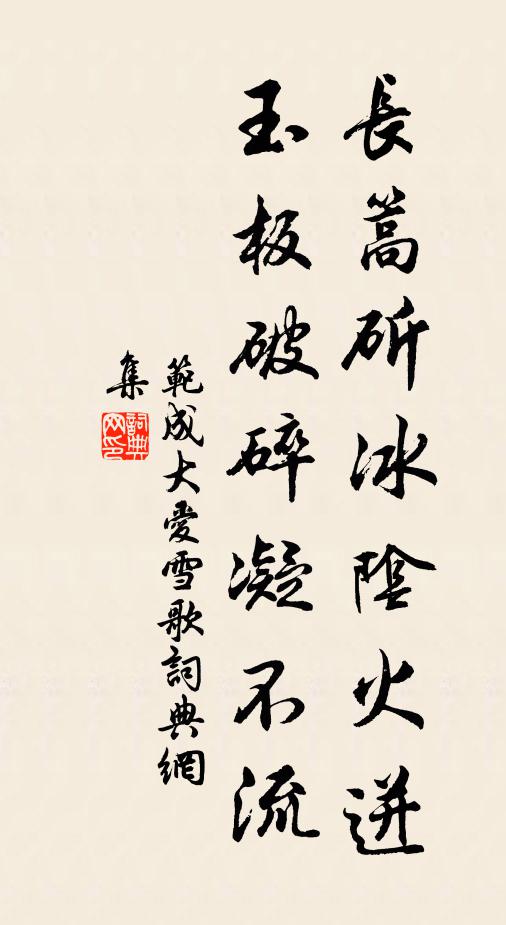 長蒿斫冰陰火迸
玉板破碎凝不流
範成大愛雪歌詞典網
集
詞典
网印